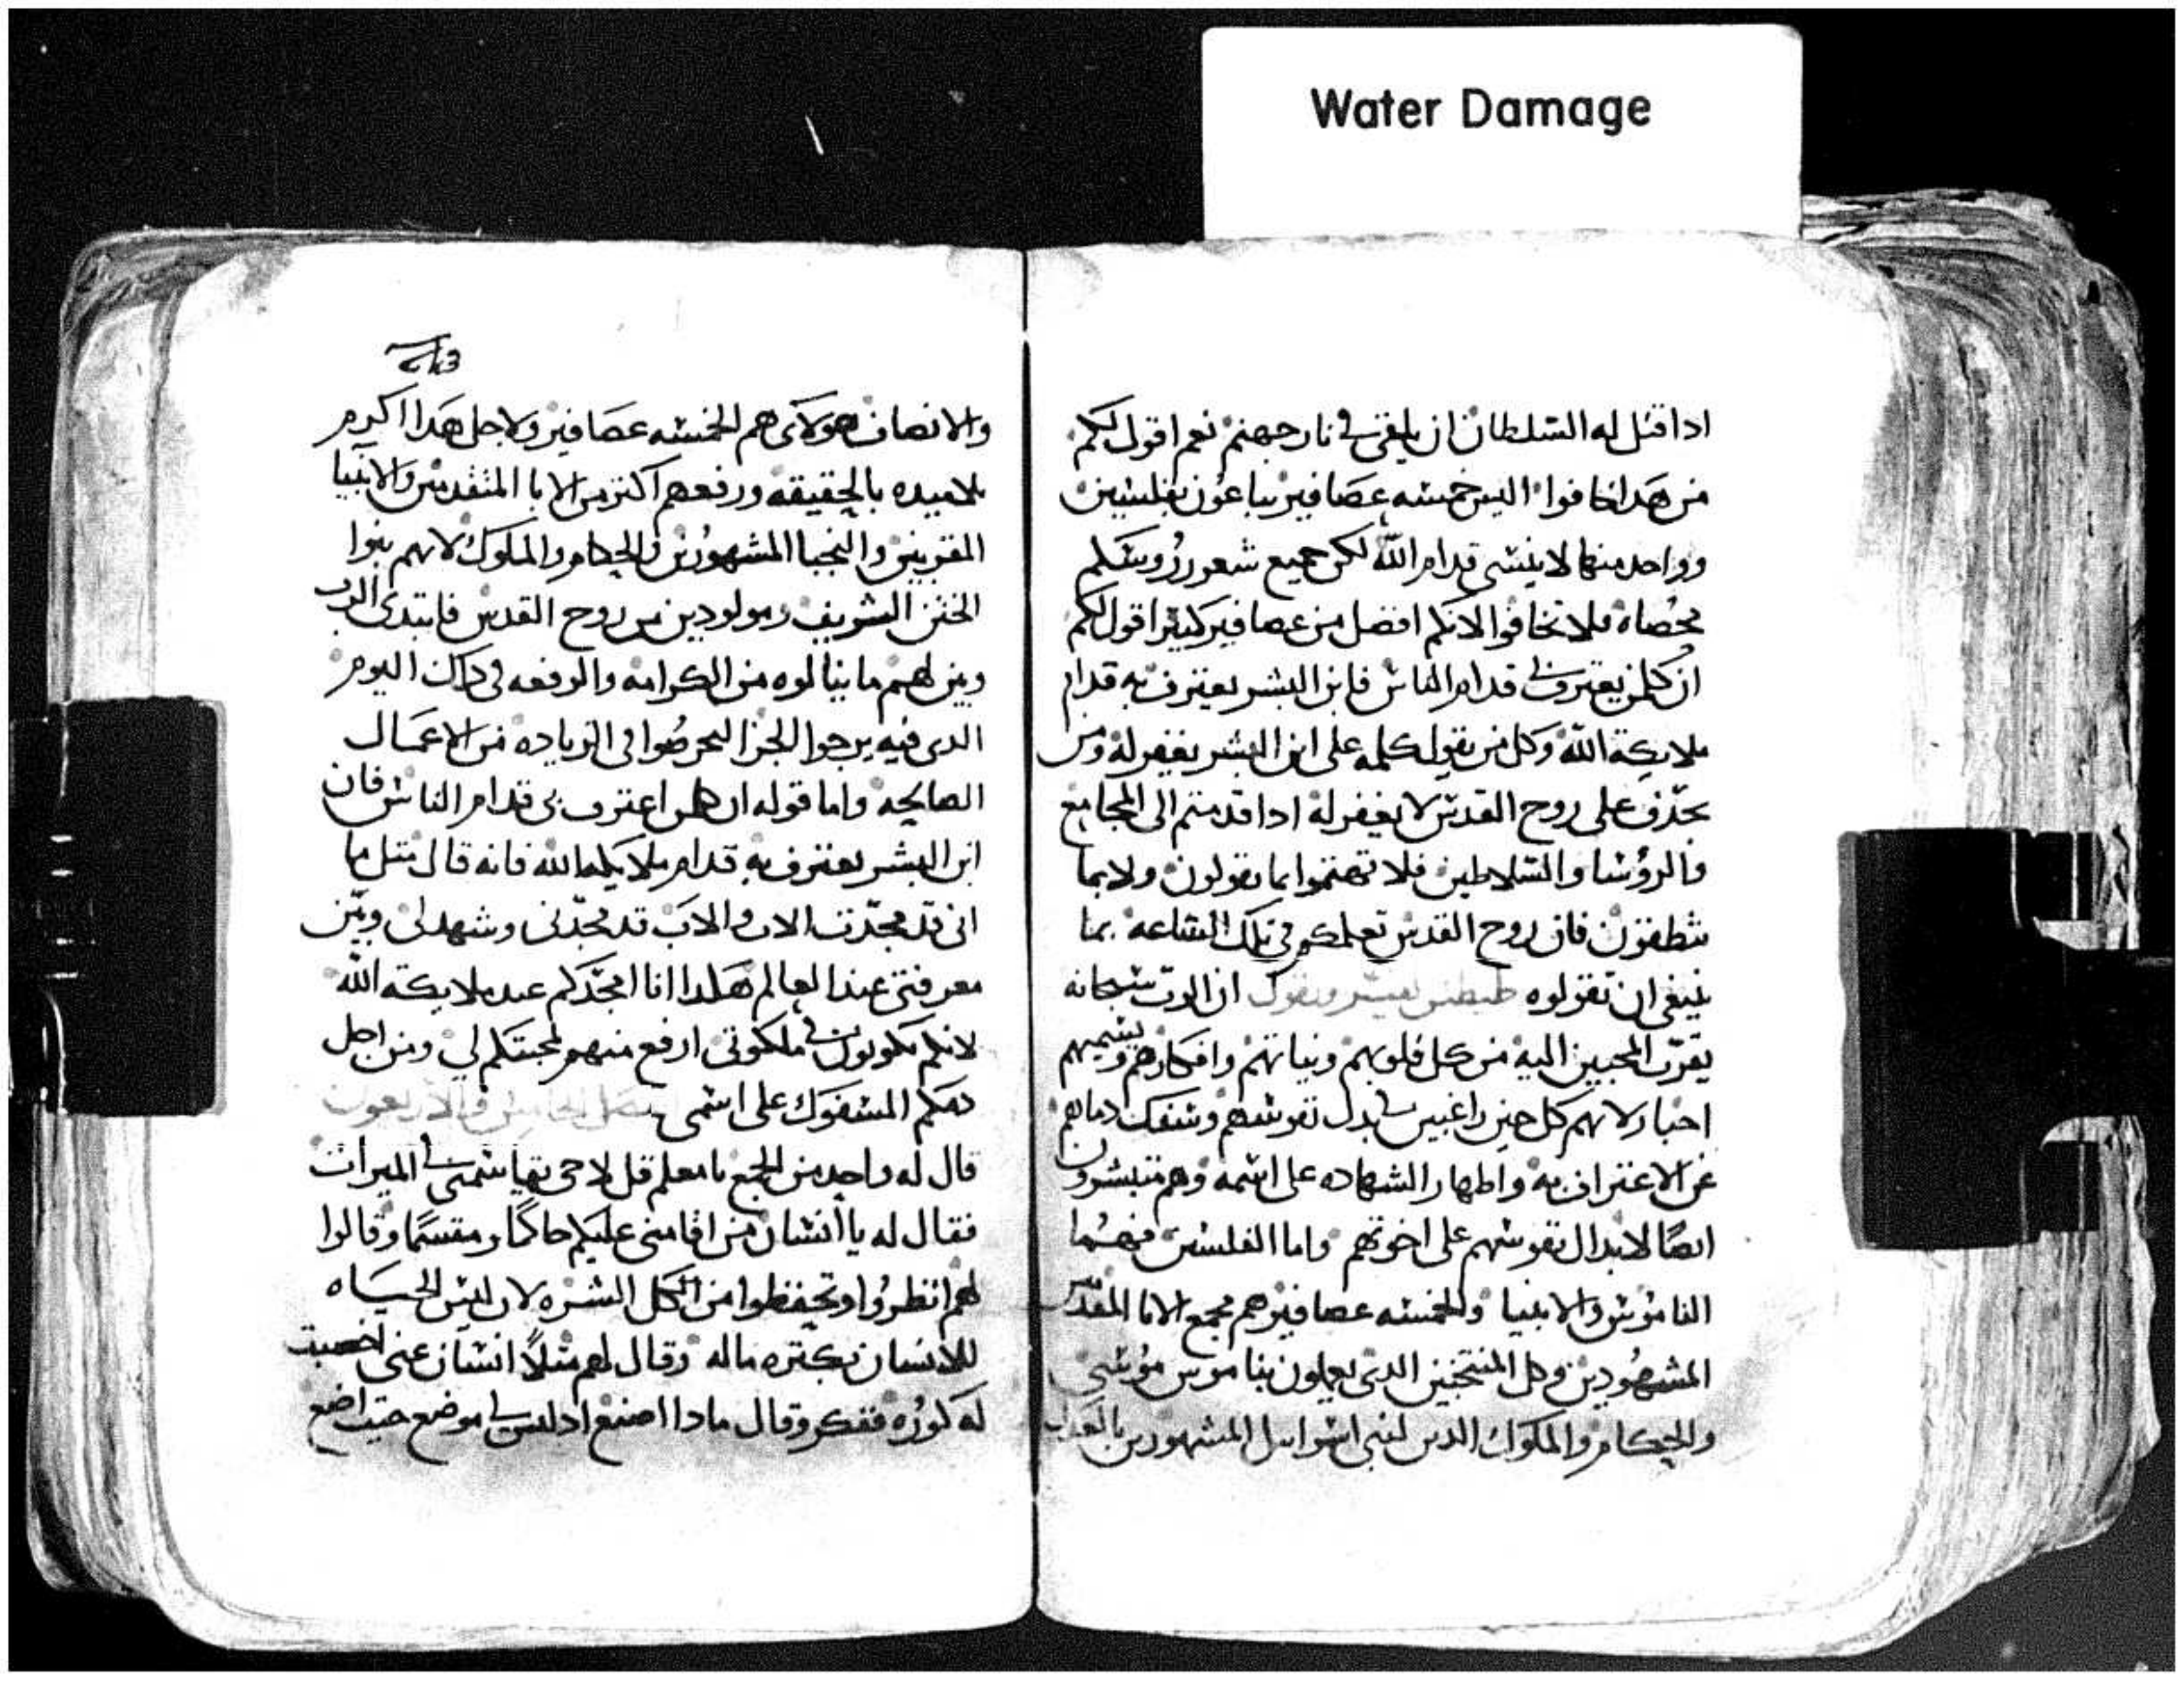 Water Damage
ادا قتل له السلطان ان يلقي في نار جهنم نعم اقول لكم
من هدا خافوا اليس خمسه عصافير يباعون بفلسين
وواحد منها لا ينسى قدام الله لكن جميع شعور روسكم
محصاه فلا تخافوا لانكم افضل من عصافير كتير اقول لكم
ان كلمن يعترف بي قدام الناس فابن البشر يعترف به قدام
ملايكة الله وكل من يقول كلمه على ابن البشر يغفر له ومن
يجدف على روح القدس لا يغفر له ادا قدمتم الى المجامع
والروسا والسلاطين فلا تهتموا بما تقولون ولا بما
تنطقون فان روح القدس تعلمكم في تلك الساعه بما
ينبغي ان تقولوه يفسر ويقول ان الرب سبحانه
يقرب المحبين اليه من كل قلوبهم ونياتهم وافكارهم ويسميهم
احبا لانهم كل حين راغبين في بدل نفوسهم وسفك دماهم
عن الاعتراف به واظهار الشهاده على اسمه وهم متبشرون
ايضا لابدال نفوسهم على اخوتهم واما الفلسين فهما
الناموس والانبيا والخمسه عصافير هم مجمع الابا المقدس
المشهودين وكل المنتخبين الدى يعملون بناموس موسى
والحكام والملوك الدين لبني اسراييل المشهورين بالعدل
والانصاف هولاى هم الخمسه عصافير ولاجل هدا اكرم
تلاميده بالحقيقه ورفعهم اكتر من الابا المتقدمين والانبيا
المقربين والنجبا المشهورين والحكام والملوك لانهم بنوا
الختن الشريف ومولودين من روح القدس فابتدى الرب
وبين لهم ما ينالوه من الكرامه والرفعه في داك اليوم
الدى فيه يرجوا الجزا ليحرصوا في الزياده من الاعمال
الصالحه واما قوله ان كلمن اعترف بى قدام الناس فان
ابن البشر يعترف به قدام ملايكة الله فانه قال متل ما
انى قد مجدت الاب والاب قد مجدنى وشهد لى وبين
معرفتى عند العالم هكدا انا امجدكم عند ملايكة الله
لانكم تكونون في ملكوتى ارفع منهم لمحبتكم لي ومن اجل
دمكم المسفوك على اسمى فصل الخامس والاربعون
قال له واحد من الجمع يا معلم قل لاخى يقاسمنى الميرات
فقال له يا انسان من اقامنى عليكم حاكما ومقسما وقالوا
لهم انظروا وتحفظوا من الكل الشره لان ليس الحياه
للانسان بكتره ماله وقال لهم مثلا انسان غنى اخصبت
له كوره ففكر وقال مادا اصنع اد ليس لي موضع حيت اضع